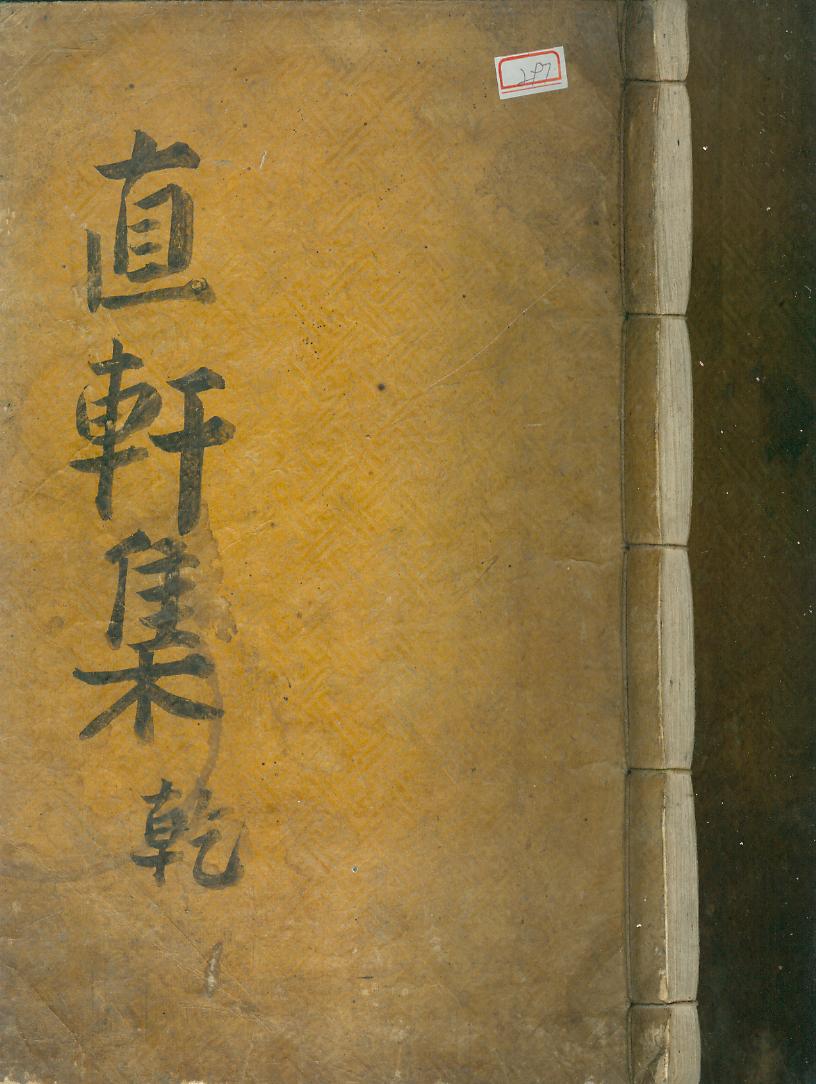 直軒集 乾